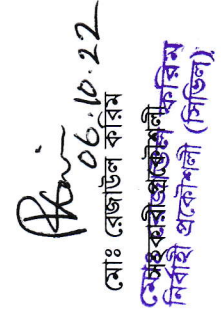 06.10.22
মোঃ রেজাউল করিম
সহকারী প্রকৌশলী
মোঃ রেজাউল করিম
নির্বাহী প্রকৌশলী (সিভিল)